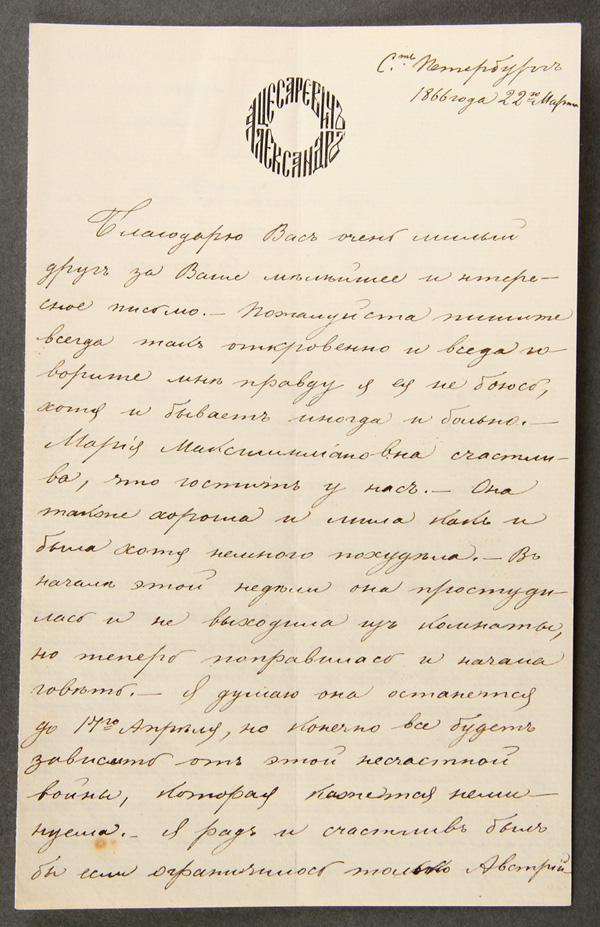 С.тъ Петербургъ
1866 года 22го Марта
ЦЕСАРЕВИЧЪ
АЛЕКСАНДРЪ
Благодарю Васъ очень милый
другъ за Ваше милѣйшее и интере-
сное письмо. — Пожалуйста пишите
всегда такъ откровенно и всегда го-
ворите мнѣ правду я ея не боюсь,
хотя и бываетъ иногда и больно. —
Марія Максимиліановна счастли-
ва, что гоститъ у насъ. — Она
также хороша и мила какъ и
была хотя немного похудѣла. — Въ
началѣ этой недѣли она простуди-
лась и не выходила изъ комнаты,
но теперь поправилась и начала
говѣть. — Я думаю она останется
до 17го Апрѣля, но конечно все будетъ
зависить отъ этой несчастной
войны, которая кажется неми-
нуема. — Я радъ и счастливъ былъ
бы если ограничилось только Австрій-